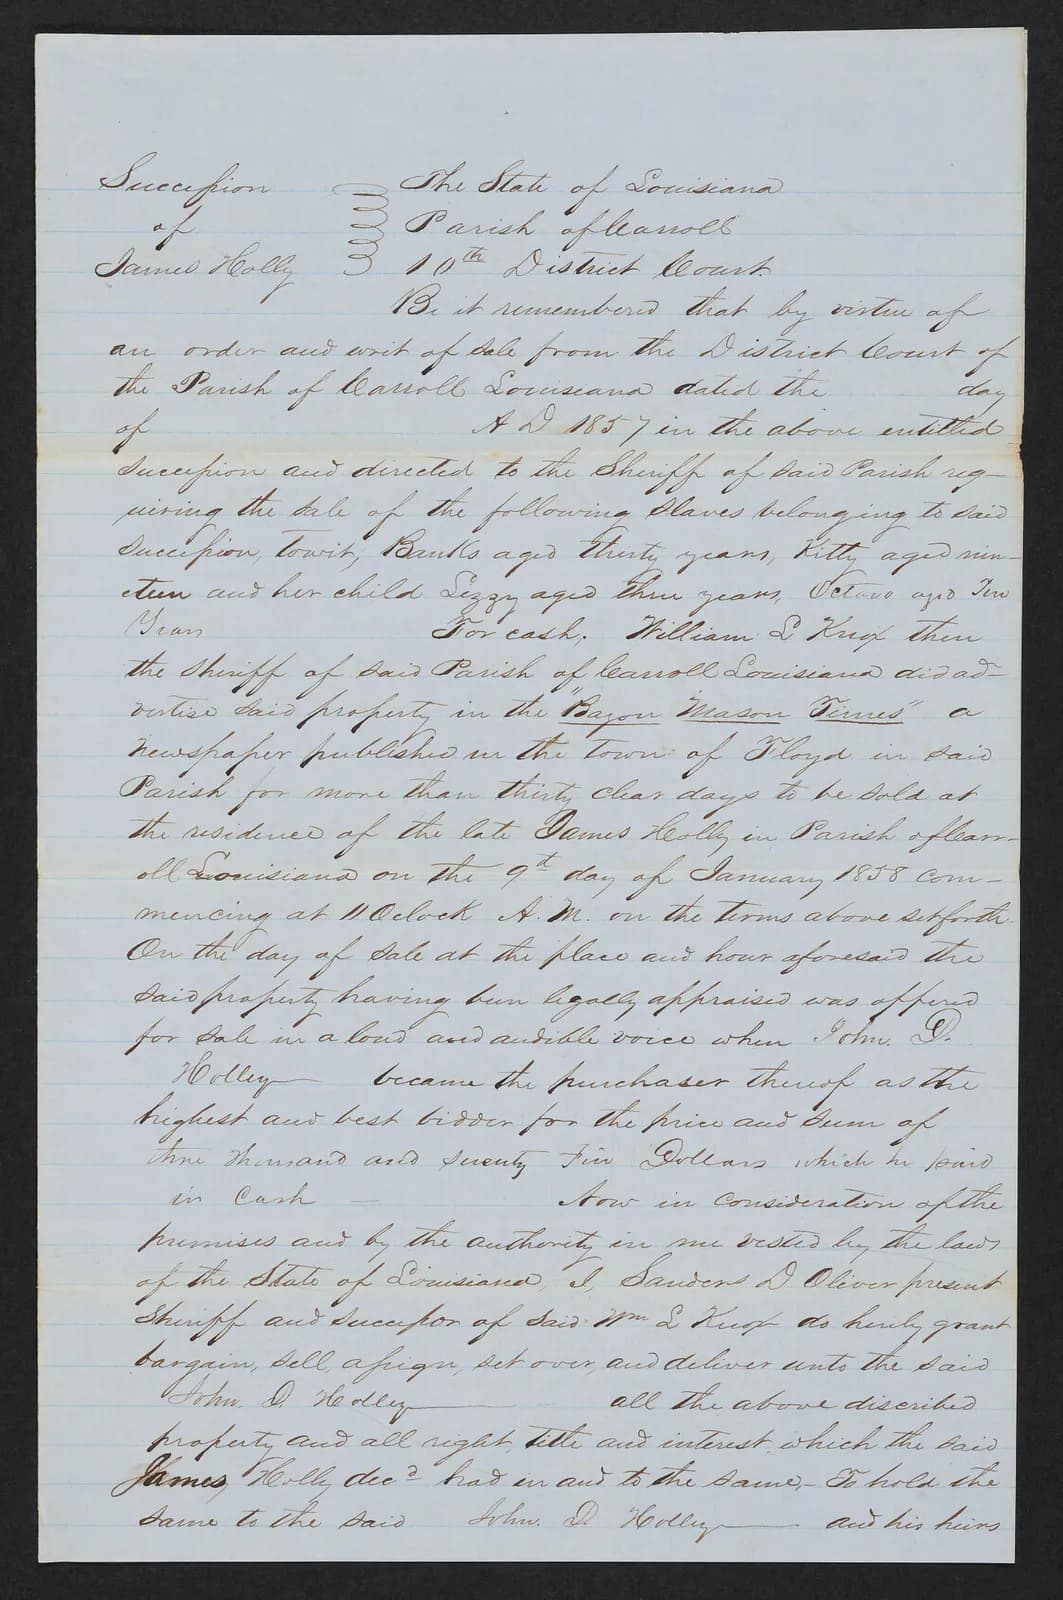 Succession
of
James Holly
The State of Louisiana
Parish of Carroll
10th District Court.
Be it remembered that by virtue of
an order and writ of sale from the District Court of
the Parish of Carroll Louisiana dated the day
of A D 1857 in the above entitled
succession and directed to the Sheriff of said Parish req-
uiring the sale of the following slaves belonging to said
succession, towit, Banks aged thirty years, Kitty aged nin-
eteen and her child Lizzy aged three years, Octave aged Ten
Years For cash; William L Knox then
the sheriff of said Parish of Carroll Louisiana did ad-
vertise said property in the "Bayou Mason Times" a
newspaper published in the town of Floyd in said
Parish for more than thirty clear days to be sold at
the residence of the late James Holly in Parish of Carr-
oll Louisiana on the 9th day of January 1858 com-
mencing at 11 Oclock A. M. on the terms above setforth
On the day of sale at the place and hour aforesaid the
said property having been legally appraised was offered
for sale in a loud and audible voice when John. D.
Holley became the purchaser thereof as the
highest and best bidder for the price and sum of
three thousand and seventy Five Dollars which he paid
in Cash Now in consideration of the
premises and by the authority in me vested by the laws
of the State of Louisiana, I, Sanders D Oliver present
Sheriff and successor of said Wm L Knox do herely grant
bargain, sell, assign, set over, and deliver unto the said
John. D. Holley all the above discribed
property and all right, title and interest which the said
James, Holly decd had in and to the same,- To hold the
same to the said John. D. Holley and his heirs